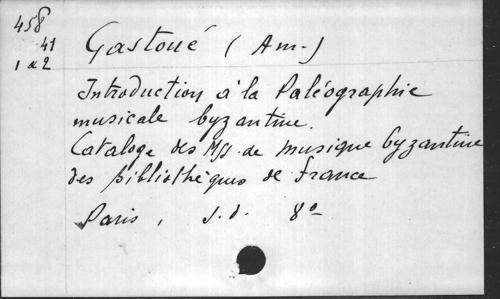 458
41
1 a 2
Gastoué (Am.)
Introduction à la Paléographie
musicale byzantine.
Cataloge des MSS. de musique byzantine
des bibliothèques de France
Paris, s. d. 8º